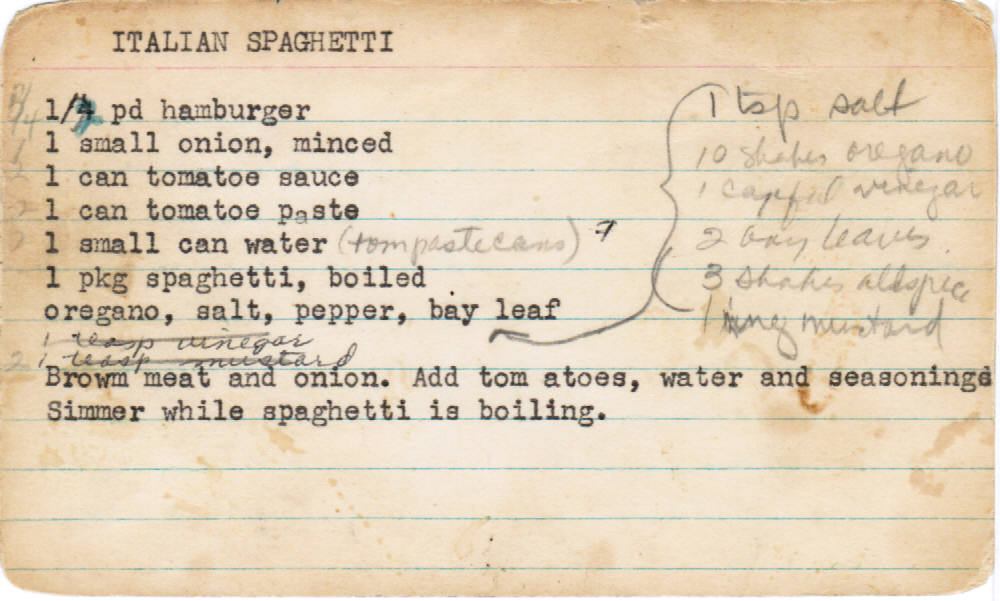 ITALIAN SPAGHETTI
1/4 pd hamburger
1 small onion, minced
1 can tomatoe sauce
1 can tomatoe paste
1 small can water (tom paste cans) 7
1 pkg spaghetti, boiled
oregano, salt, pepper, bay leaf
1 teasp vinegar
1 teasp mustard
Browm meat and onion. Add tom atoes, water and seasonings
Simmer while spaghetti is boiling.
1 tsp salt
10 shakes oregano
1 capful vinegar
2 bay leaves
3 shakes allspice
1 mustard